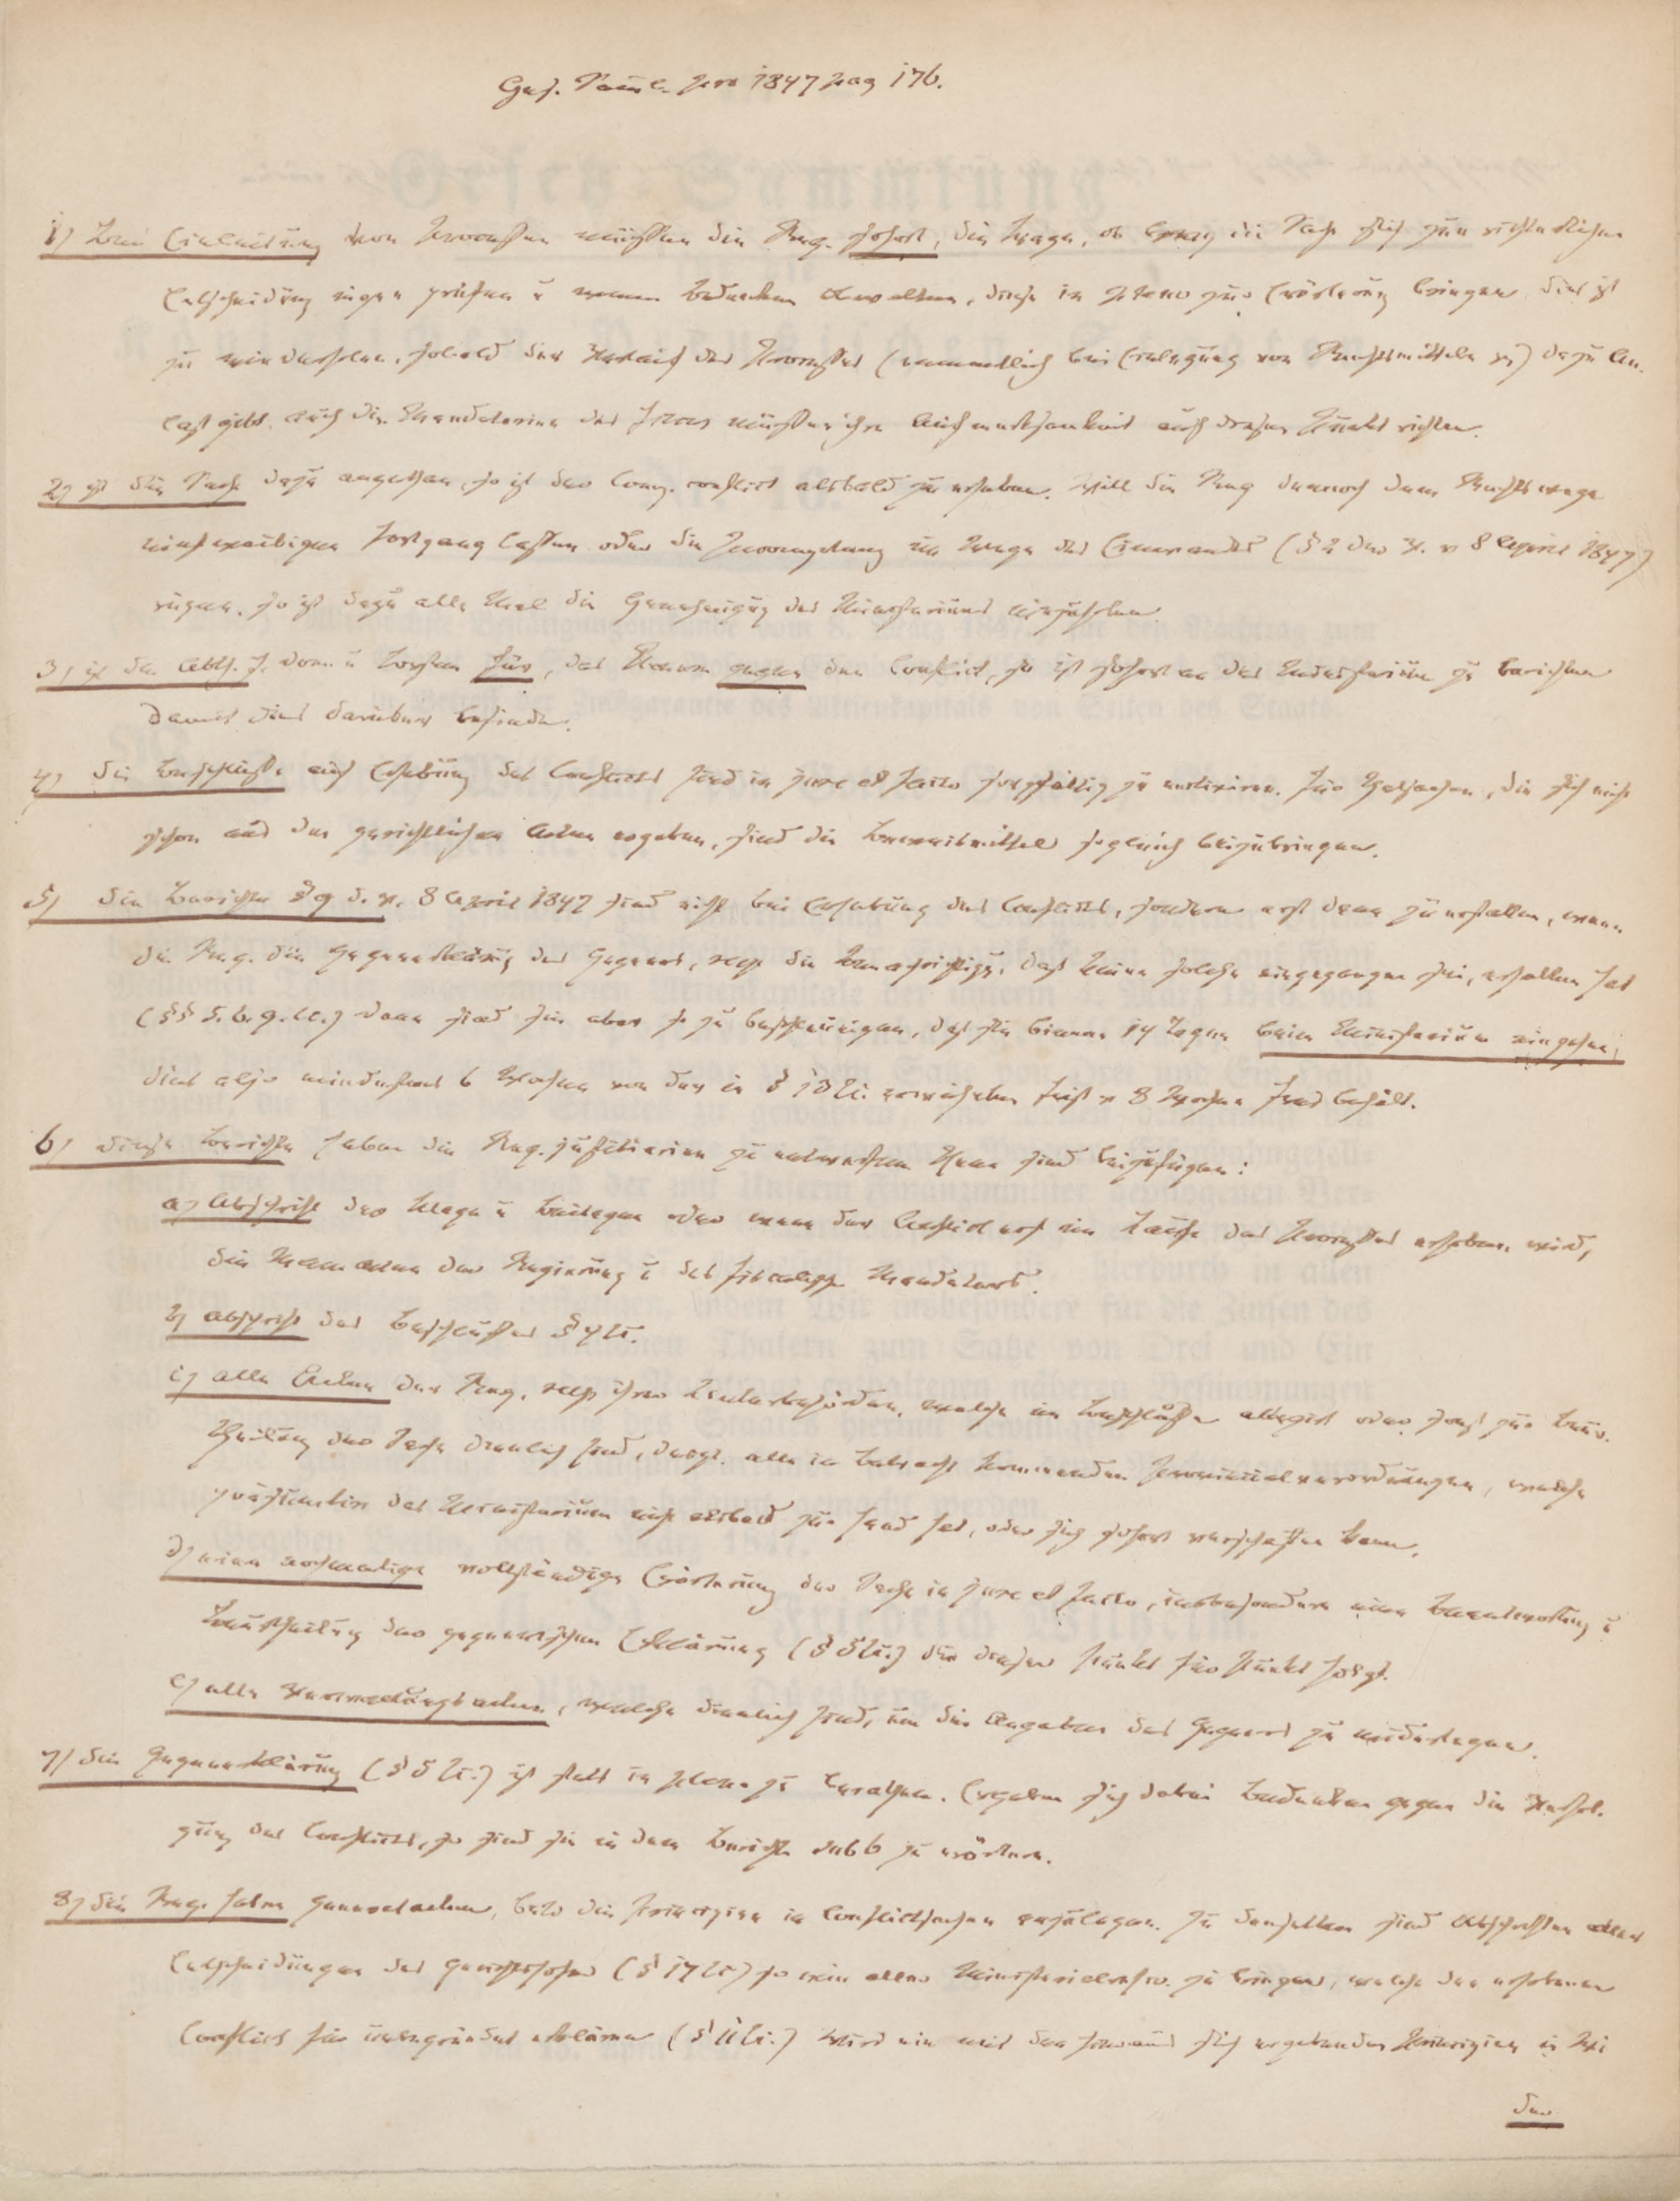 Ges. Samml. pro 1847 pag 176.
1) Bei Einleitung von Processen müssen die Reg. sofort, die Frage, ob die Sache sich zur richterlichen
Entscheidung eigne prüfen u wenn Bedenken obwalten, diese in pleno zur Erörterung bringen. dies ist
zu wiederholen, sobald der Verlauf des Processes (namentlich bei Einlegung von Rechtsmitteln pp) dazu An-
laß gibt. Auch die Mandatarien des Fiscus müssen ihre Aufmerksamkeit auf diesen Punkt richten.
2) ist die Sache dazu angethan, so ist der Comp. conflict alsbald zu erheben. Will die Reg dennoch dem Rechtswege
Fortgang lassen oder die Incompetenz im Wege des Einwandes (§ 2 des G. v 8 April 1847)
rügen, so ist dazu alle Mal die Genehmigung des Ministeriums einzuholen.
3) ist die Abth. f. Dom. u Forsten für, das Plenum gegen den Conflict, so ist sofort an das Ministerium zu berichten
damit dies darüber befinde.
4) die Beschlüsse auf Erhebung des Conflicts sind in jure et facto sorgfältig zu motiviren. Für Thatsachen, die sich nicht
schon aus den gerichtlichen Acten ergeben, sind die Beweismittel sogleich beizubringen.
5) die Berichte § 9 d. G. 8 April 1847 sind nicht bei Erhebung des Conflicts, sondern erst dann zu erstatten, wenn
die Reg. die Gegenerklärung des Gegners, resp die Benachrichtigg. daß keine solche eingegangen sei, erhalten hat
(§§ 5. 6. 9. l.c.) dann sind sie aber so zu beschleunigen, daß sie binnen 14 Tagen beim Ministerium eingehen,
dies also mindestens 6 Wochen von der in § 10 l.c. Frist v 8 Wochen frei behält.
6) diese Berichte haben die Reg. justitiarien zu entwerfen Ihnen sind beizufügen:
a) Abschrift der Klage u Beilagen oder wenn der Conflict erst im Laufe des Processes erhoben wird,
die der Regierung u des fiscalischen Mandatars.
b) Abschrift des Beschlusses § 4 l.c.
c) alle Acten der Reg. resp ihrer Unterbehörden, welche im Beschlusse allegirt oder sonst zur Beur-
theilung der Sache dienlich sind, desgl. alle in Betracht kommenden Provinzialverordnungen, welche
präsumtiv das Ministerium nicht alsbald zur Hand hat, oder sich sofort verschaffen kann.
d) eine nochmalige vollständige Erörterung der Sache in jure et facto, insbesondere eine Beantwortung u
Beurtheilung der gegnerischen Erklärung (§ 5 l.c.) die dieser Punkt für Punkt folgt.
e) alle Verwaltungsacten, welche dienlich sind, um die Angaben des Gegners zu widerlegen.
7) die Gegenerklärung (§ 5 l.c.) ist stets in pleno zu berathen. Ergeben sich dabei Bedenken gegen die Verfol-
gung des Conflicts, so sind sie in dem Berichte sub 6 zu erörtern.
8) die Reg. haben Generalacten, betr die Principien in Conflictsachen anzulegen. Zu denselben sind Abschriften aller
Entscheidungen des Gerichtshofes (§ 14 l.c.) so wie aller Ministerialrescr. zu bringen, welche den erhobenen
Conflict für unbegründet erklären (§ 11 l.c.) Wird ein mit den hieraus sich ergebenden Principien in Wi
der